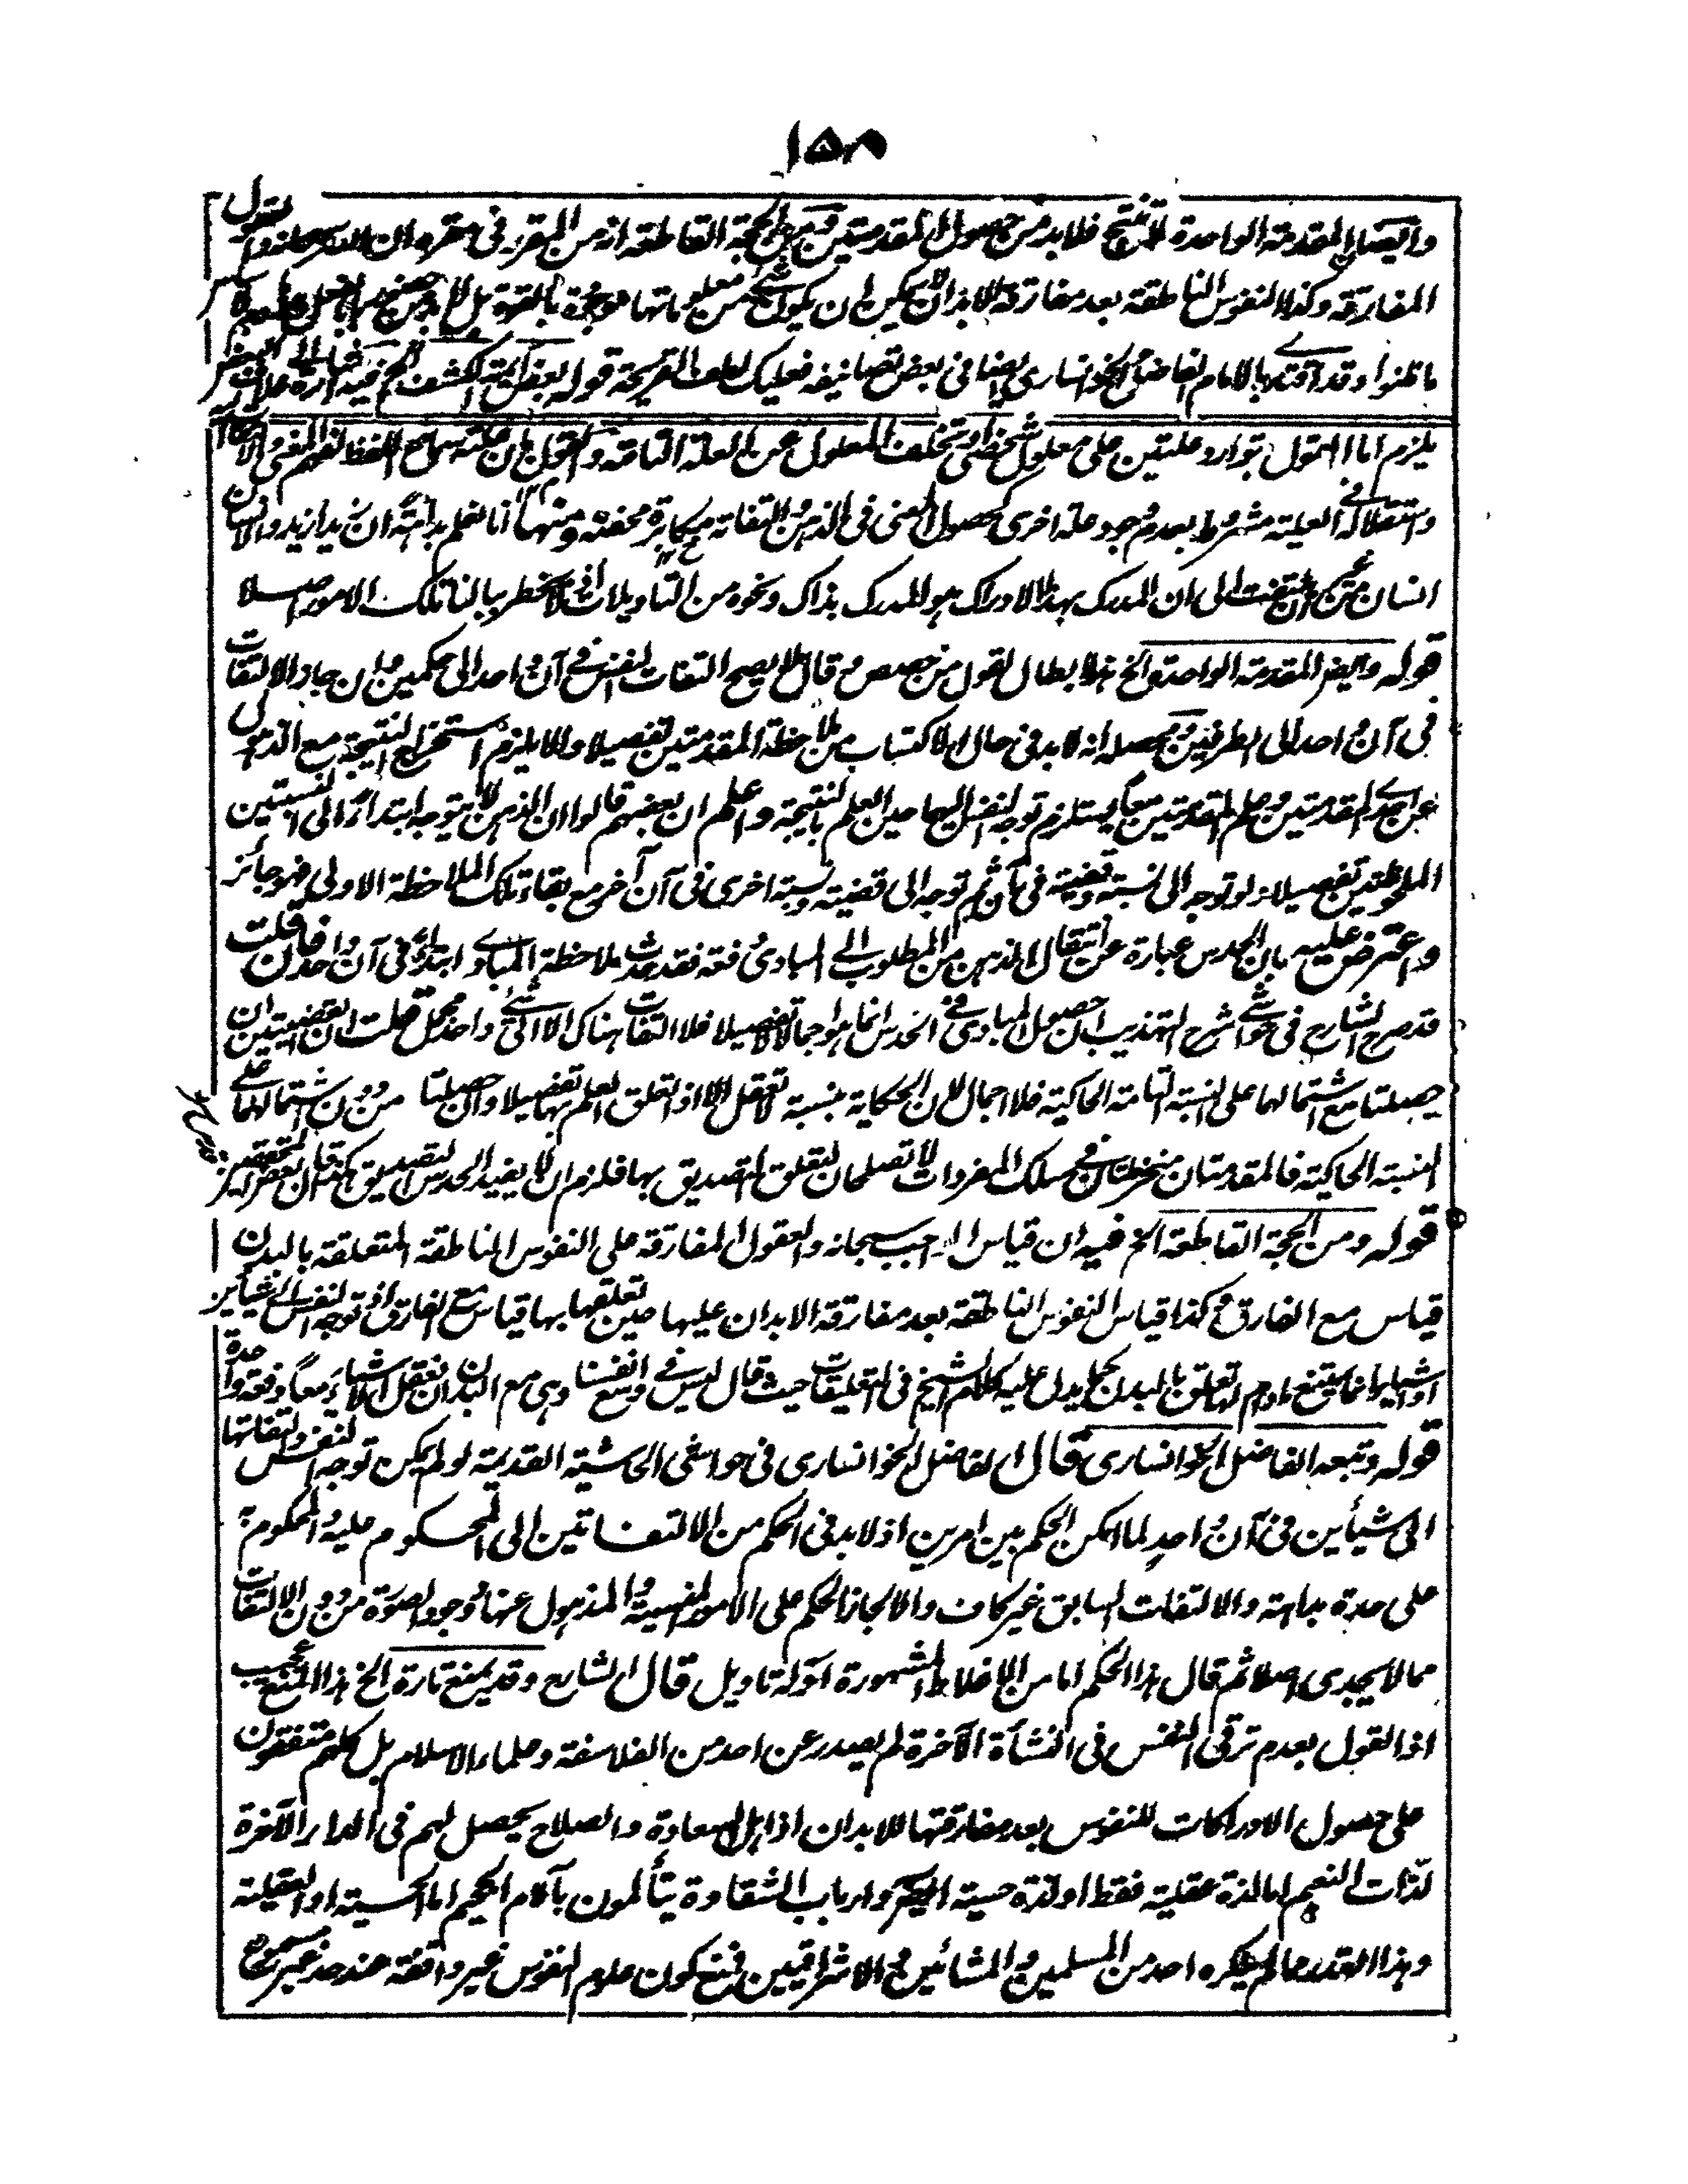 ١٥٨
وايضا المقدمة الواحدة لا تنتج فلا بد من حصول المقدمتين ومن الحجة القاطعة انه من المقرر في مقره ان الله سبحانه والعقول
المفارقة وكذا النفوس الناطقة بعد مفارقة الابدان لا يمكن ان يكون شيء من معلوماتها موجودة بالقوة بل لا بد من
ما ظنوا وقد اقتدى بالامام الفاضل الخوانساري ايضا في بعض تصانيفه فعليك بلطف القريحة قوله بعض ائمة الكشف الخ فيه انه
يلزم اما القول بتوارد علتين على معلول شخصي او تخلف المعلول عن العلة التامة والقول بان علته سماع اللفظ لفهم المعنى
واستقلاله في العلية مشروط بعدم وجود علة اخرى لحصول المعنى في الذهن والتفاته مكابرة محضة ومنها انا نعلم بداهة ان زيدا زيد والانسان
انسان من غير ان نلتفت الى ان المدرك بهذا الادراك هو المدرك بذاك ونحوه من التاويلات اذ لا يخطر ببالنا تلك الامور اصلا
قوله وايضا المقدمة الواحدة الخ هذا ابطال لقول من خصص وقال لا يصح التفات النفس في آن واحد الى حكمين وان جاز الالتفات
في آن واحد الى الطرفين ومحصله انه لا بد في حال الاكتساب من ملاحظة المقدمتين تفصيلا والا لا يلزم استخراج النتيجة مع الذهول
عن احدى المقدمتين وعلم المقدمتين معا يستلزم توجه النفس اليهما حين العلم بالنتيجة واعلم ان بعضهم قالوا ان الذهن لا يتوجه ابتداء الى النسبتين
الملحوظتين تفصيلا ولو توجه الى نسبة وقضية في آن ثم توجه الى قضية ونسبة اخرى في آن آخر مع بقاء تلك الملاحظة الاولى فهو جائز
واعترض عليه بان الحدس عبارة عن انتقال الذهن من المطلوب الى المبادي دفعة فقد حدث ملاحظة المبادي ابتداء في آن واحد فان قلت
قد صرح الشارح في حواشي شرح التهذيب ان حصول المبادي في الحدس انما هو اجمالا لا تفصيلا فلا التفات هناك الا الى شيء واحد مجمل قلت ان القضيتين ان
حصلتا مع اشتمالهما على النسبة التامة الحاكية فلا اجمال لان الحكاية بنسبة لا تعقل الا اذا تعلق العلم بها تفصيلا وان حصلتا من دون اشتمالهما على
النسبة الحاكية فالمقدمتان منخرطتان في سلك المفردات لا تصلحان لتعلق التصديق بها فلزم ان لا يفيد الحدس التصديق كذا قال بعض المحققين
قوله ومن الحجة القاطعة الخ فيه ان قياس الواجب سبحانه والعقول المفارقة على النفوس الناطقة المتعلقة بالبدن
قياس مع الفارق وكذا قياس النفوس الناطقة بعد مفارقة الابدان عليها حين تعلقها بها قياس مع الفارق اذ توجه النفس الى شيئين
او اشياء انما يمتنع ما دام لها تعلق بالبدن كما يدل عليه كلام الشيخ في التعليقات حيث قال ليس في وسع انفسنا وهي مع البدن ان تعقل الاشياء معا دفعة واحدة
قوله وتبعه الفاضل الخوانساري قال الفاضل الخوانساري في حواشي الحاشية القديمة لو لم يكن توجه النفس والتفاتها
الى شيئين في آن واحد لما امكن الحكم بين امرين اذ لا بد في الحكم من الالتفاتين الى المحكوم عليه والمحكوم به
على حدة بداهة والالتفات السابق غير كاف والا لجاز الحكم على الامور المنسية والمذهول عنها ووجود الصورة من دون الالتفات
مما لا يجدي اصلا ثم قال هذا الحكم اما من الاغلاط المشهورة او له تاويل قال الشارح وقد يمنع تارة الخ هذا المنع عجيب
اذ القول بعدم ترقي النفس في النشأة الآخرة لم يصدر عن احد من الفلاسفة وعلماء الاسلام بل كلهم متفقون
على حصول الادراكات للنفوس بعد مفارقتها للابدان اذ اهل السعادة والصلاح يحصل لهم في الدار الآخرة
لذات النعيم اما لذة عقلية فقط او لذة حسية ايضا وارباب الشقاوة يتألمون بآلام الجحيم اما الحسية او العقلية
وهذا القدر مما لم ينكره احد من المسلمين والمشائين والاشراقيين فمنع كون علوم النفوس غير واقفة عند حد غير مسموع